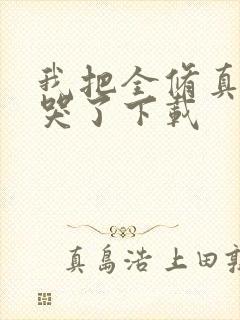 我把全脩真
哭了下載
真島浩 上田敦